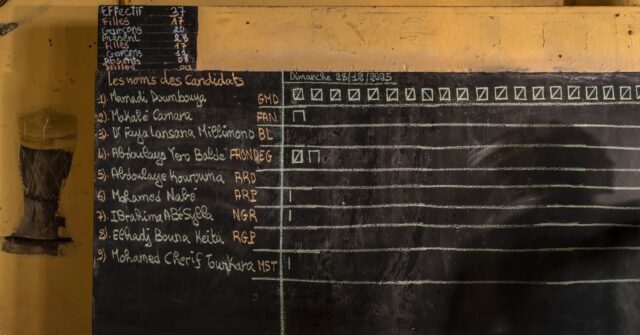 Effectif 37
Filles 17
Garçons 20
Présent 28
Filles 17
Garçons 11
Absents 09
Filles 00
Les noms des Candidats
Dimanche 28/12/2025
1) Mamadi Doumbouya GMD
2) Makalé Camara FAN
3) Dr Faya Lansana Millimono BL
4) Abdoulaye Yero Baldé FRONDEG
5) Abdoulaye Kourouma RRD
6) Mohamed Nabé ARP
7) IBrahima ABé Sylla NGR
8) Elhadj Bouna Keita RGP
9) Mohamed Cherif Tounkara MST